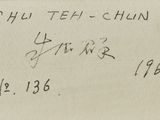 CHU TEH-CHUN
朱德群
No. 136
196